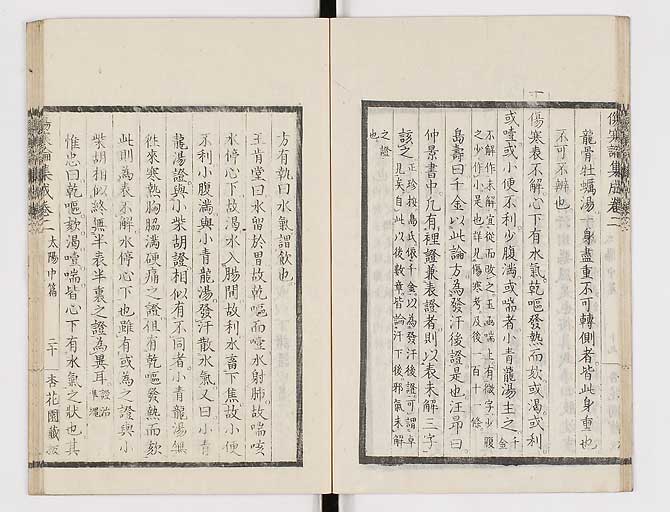 傷寒論集成卷二
龍骨牡蠣湯一身盡重不可轉側者皆此身重也
不可不辨也
傷寒表不解心下有水氣乾嘔發熱而欬或渴或利
或噎或小便不利少腹滿或喘者小青龍湯主之千金
不解作未解宜從而改之玉函喘上有微字少腹
之少作小是也詳見傷寒考及後一百十一條
島壽曰千金以此論方為發汗後證是也汪昂曰
仲景書中凡有裡證兼表證者則以表未解三字
該之正珍按島氏依千金以為發汗後證可謂卓
見矣自此以後數章皆論汗下後邪氣未解
之證
也
方有執曰水氣謂飲也
王肯堂曰水留於胃故乾嘔而噎水射肺故喘咳
水停心下故渴水入腸間故利水畜下焦故小便
不利小腹滿與小青龍湯發汗散水氣又曰小青
龍湯證與小柴胡證相似有不同者小青龍湯無
往來寒熱胸脇滿硬痛之證但有乾嘔發熱而欬
此則為表不解水停心下也雖有或為之證與小
柴胡相似終無半表半裏之證為異耳證治準繩
惟忠曰乾嘔欬渴噎喘皆心下有水氣之狀也其
傷寒論集成卷二 太陽中篇 二十 杏花園藏板